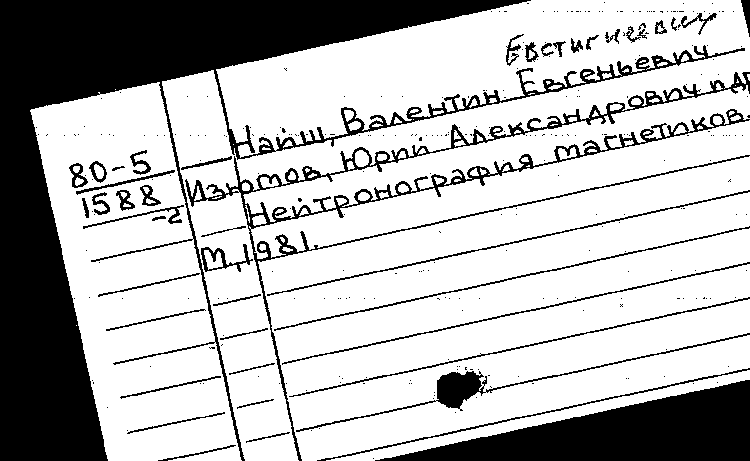 Евстигнеевич
Найш, Валентин Евгеньевич.
80-5
1588
-2
Изюмов, Юрий Александрович и др
Нейтронография магнетиков.
М., 1981.